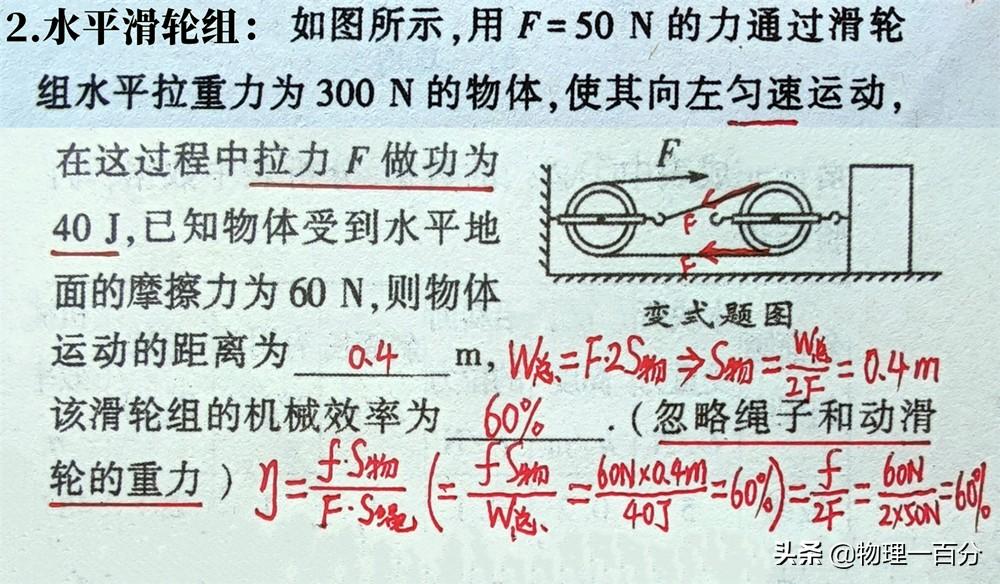 2.水平滑轮组：如图所示,用 F=50 N 的力通过滑轮
组水平拉重力为 300 N 的物体,使其向左匀速运动,
在这过程中拉力 F 做功为
40 J,已知物体受到水平地
面的摩擦力为 60 N,则物体
运动的距离为 0.4 m, W总=F·2S物⇒S物=W总/2F=0.4m
该滑轮组的机械效率为 60% .(忽略绳子和动滑
轮的重力) η=f·S物/F·S绳(=fS物/W总=60N×0.4m/40J=60%)=f/2F=60N/2×50N=60%
F
F
F
变式题图
头条 @物理一百分